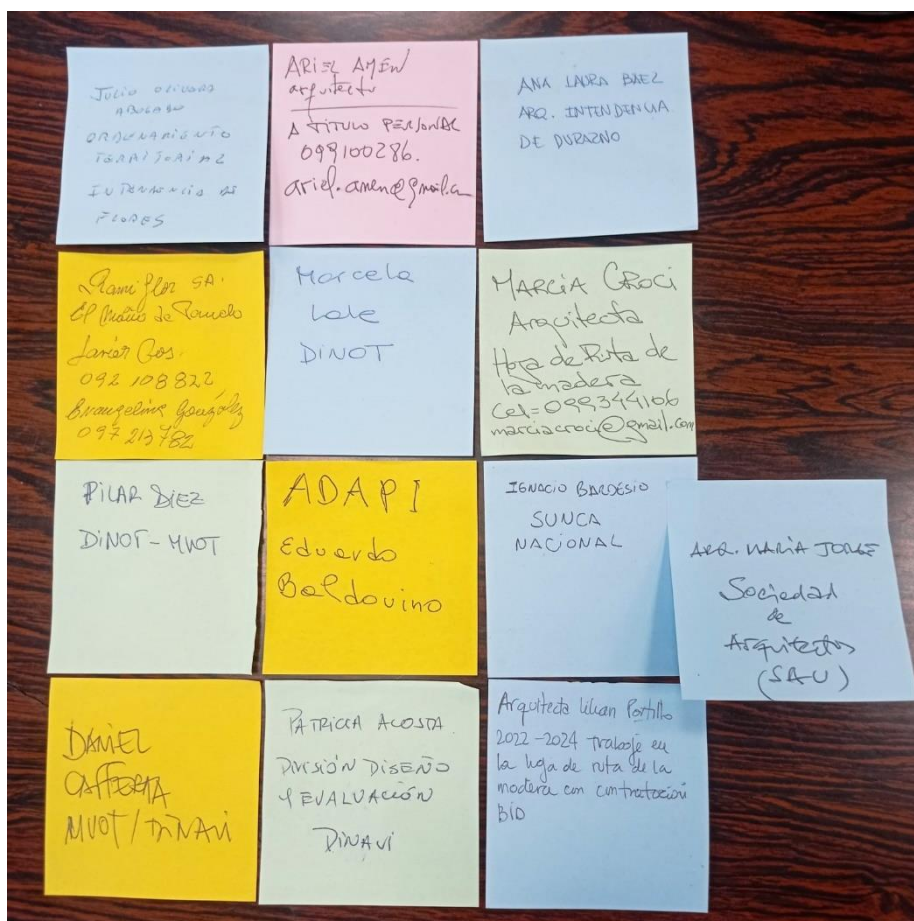 JULIO OLIVERA
ABOGADO
ORDENAMIENTO
TERRITORIAL
INTENDENCIA DE
FLORES
ARIEL AMÉN
arquitecto
A TITULO PERSONAL
099100286.
ariel.amen@gmail.com
ANA LAURA BAEZ
ARQ. INTENDENCIA
DE DURAZNO
Ramiflor SA.
El Prado de
Javier Cos.
092 108822
Evangelina González
097 213782
Marcela
DINOT
MARCIA CROCI
Arquitecta
Hoja de Ruta de
la madera
cel=099344106
marciacroci@gmail.com
PILAR DIEZ
DINOT-MVOT
ADAPI
Eduardo
Baldovino
IGNACIO BARDESIO
SUNCA
NACIONAL
ARQ. MARÍA JORGE
Sociedad
de
Arquitectos
(SAU)
DANIEL
CAFFERA
MVOT/DINAVI
PATRICIA ACOSTA
DIVISIÓN DISEÑO
Y EVALUACIÓN
DINAVI
Arquitecta Lilian Portillo
2022-2024 trabajé en
la hoja de ruta de la
madera con contratación
BID